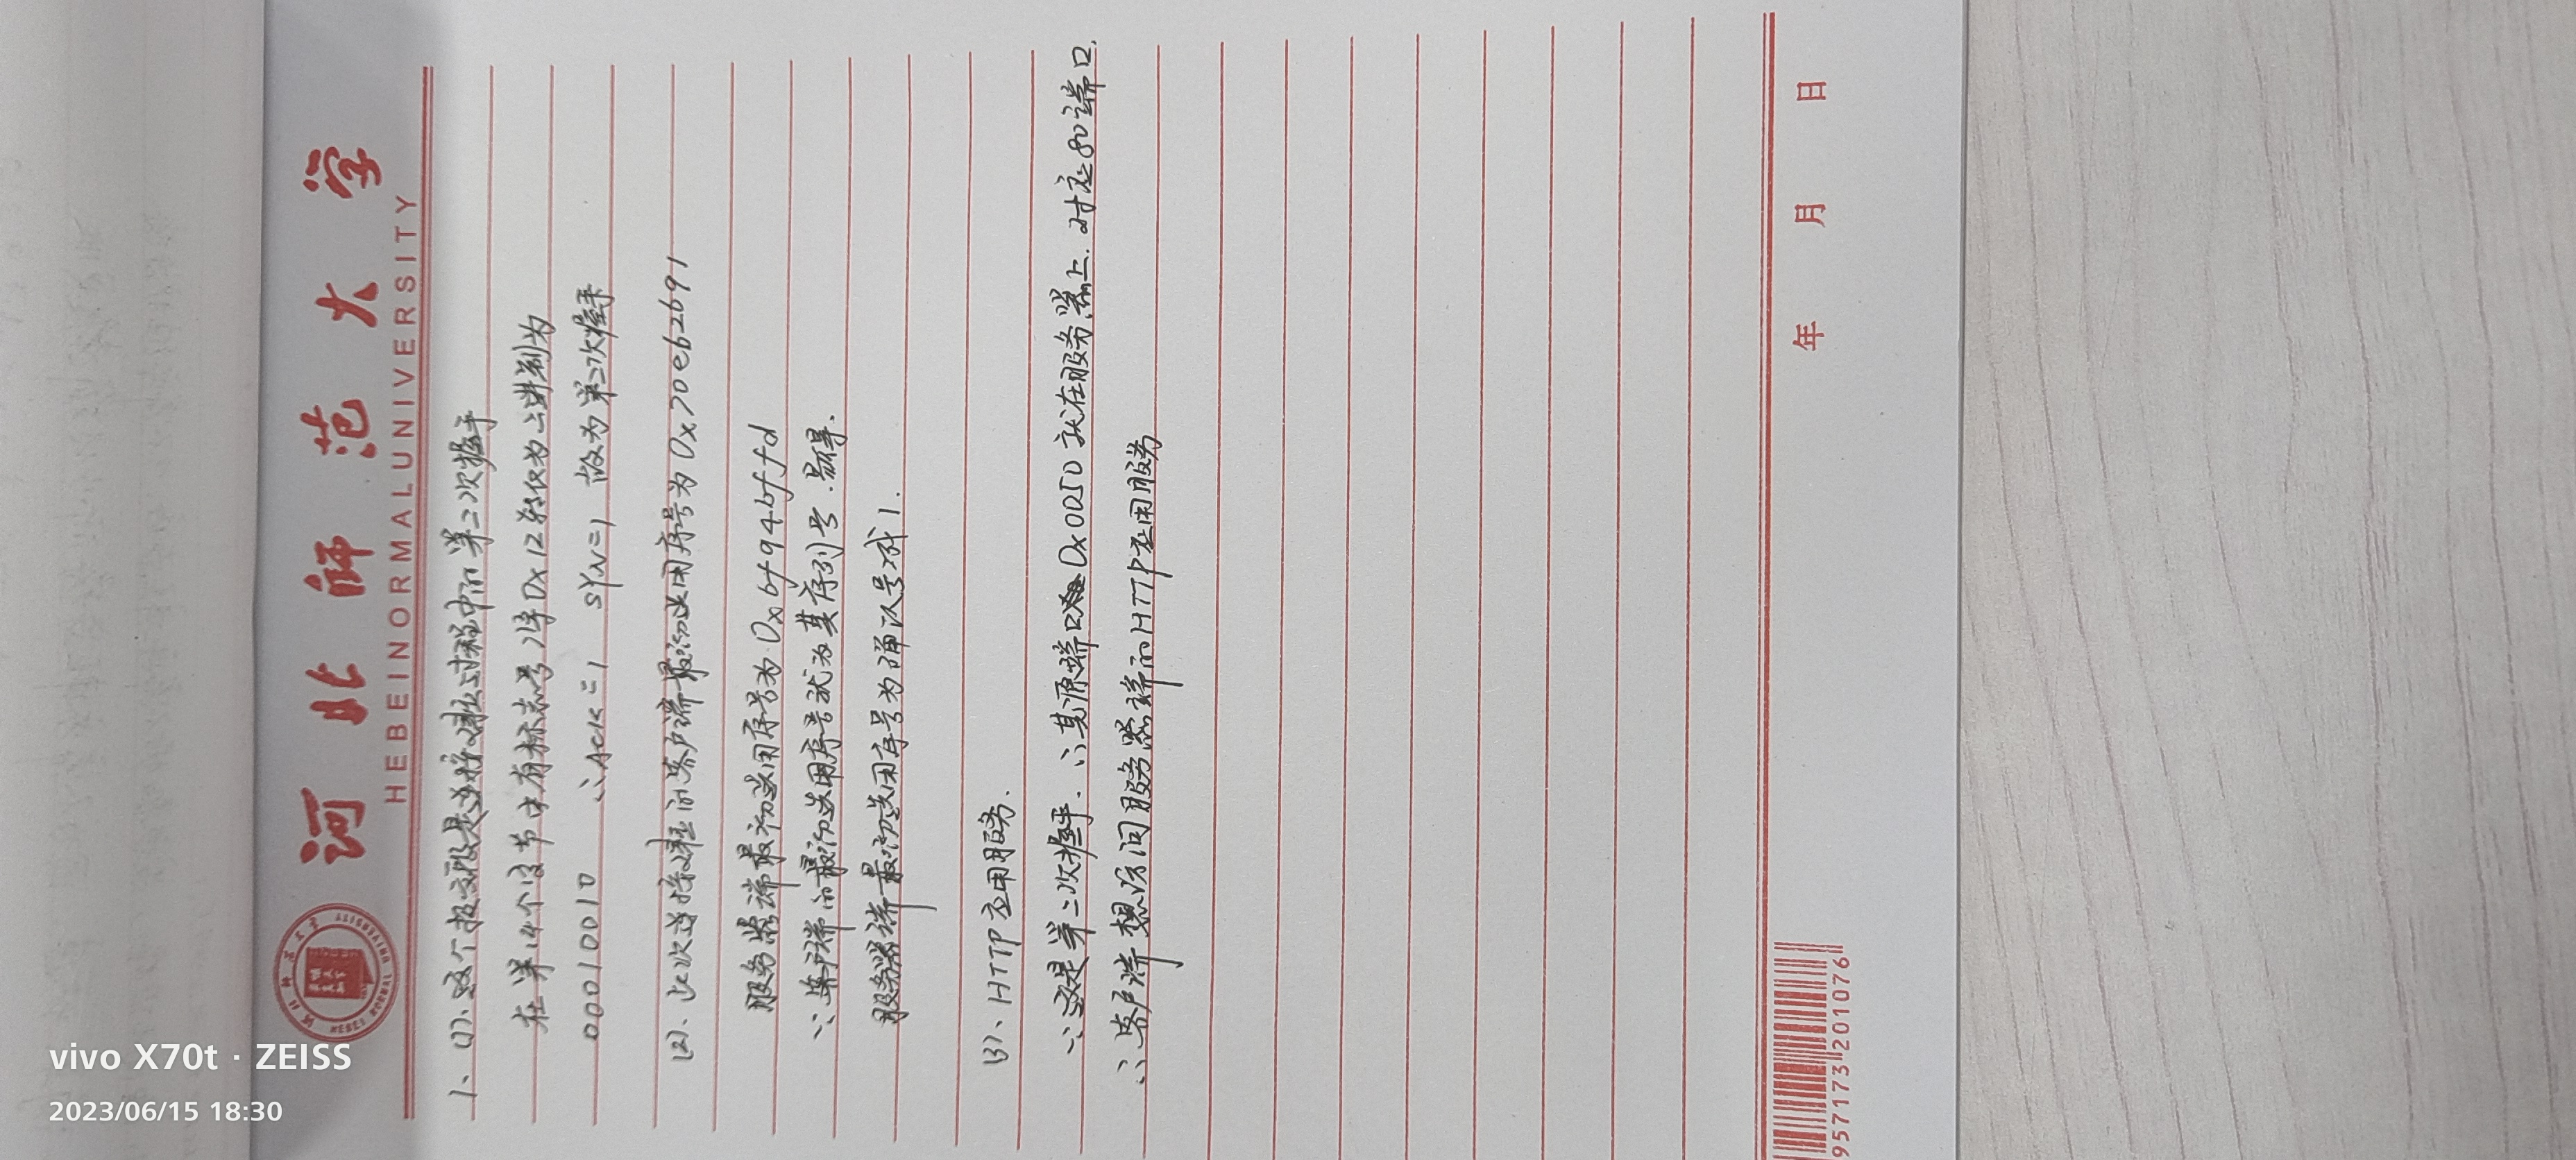 河北师范大学
HEBEI NORMAL UNIVERSITY
1、(1)、这个报文段是连接建立过程中的第二次握手
在第14个字节中有标志号 字0x12转换为二进制为
00010010 ∴ACK=1 SYN=1 故为第二次握手
(2)、此次连接建立的客户端最初选用序号为0x70eb2b91
服务器端最初选用序号为0xbf94bffd
∵客户端的最初选用序号就为其序列号.易得.
服务器端最初选用序号为确认号减1.
(3)、HTTP应用服务.
∵这是第二次握手.∴其源端口0x0050就在服务器上.对应80端口.
∴客户端想访问服务器端的HTTP应用服务
年 月 日
9571173 201076
vivo X70t · ZEISS
2023/06/15 18:30